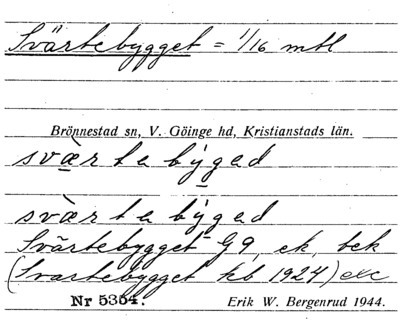 Svärtebygget = 1/16 mtl
Brönnestad sn, V. Göinge hd, Kristianstads län.
sværtebýged
svæ̀rtebýged
Svärtebygget G9, ek, bek
(Svartebygget kb 1924) etc
Nr 5354. Erik W. Bergenrud 1944.